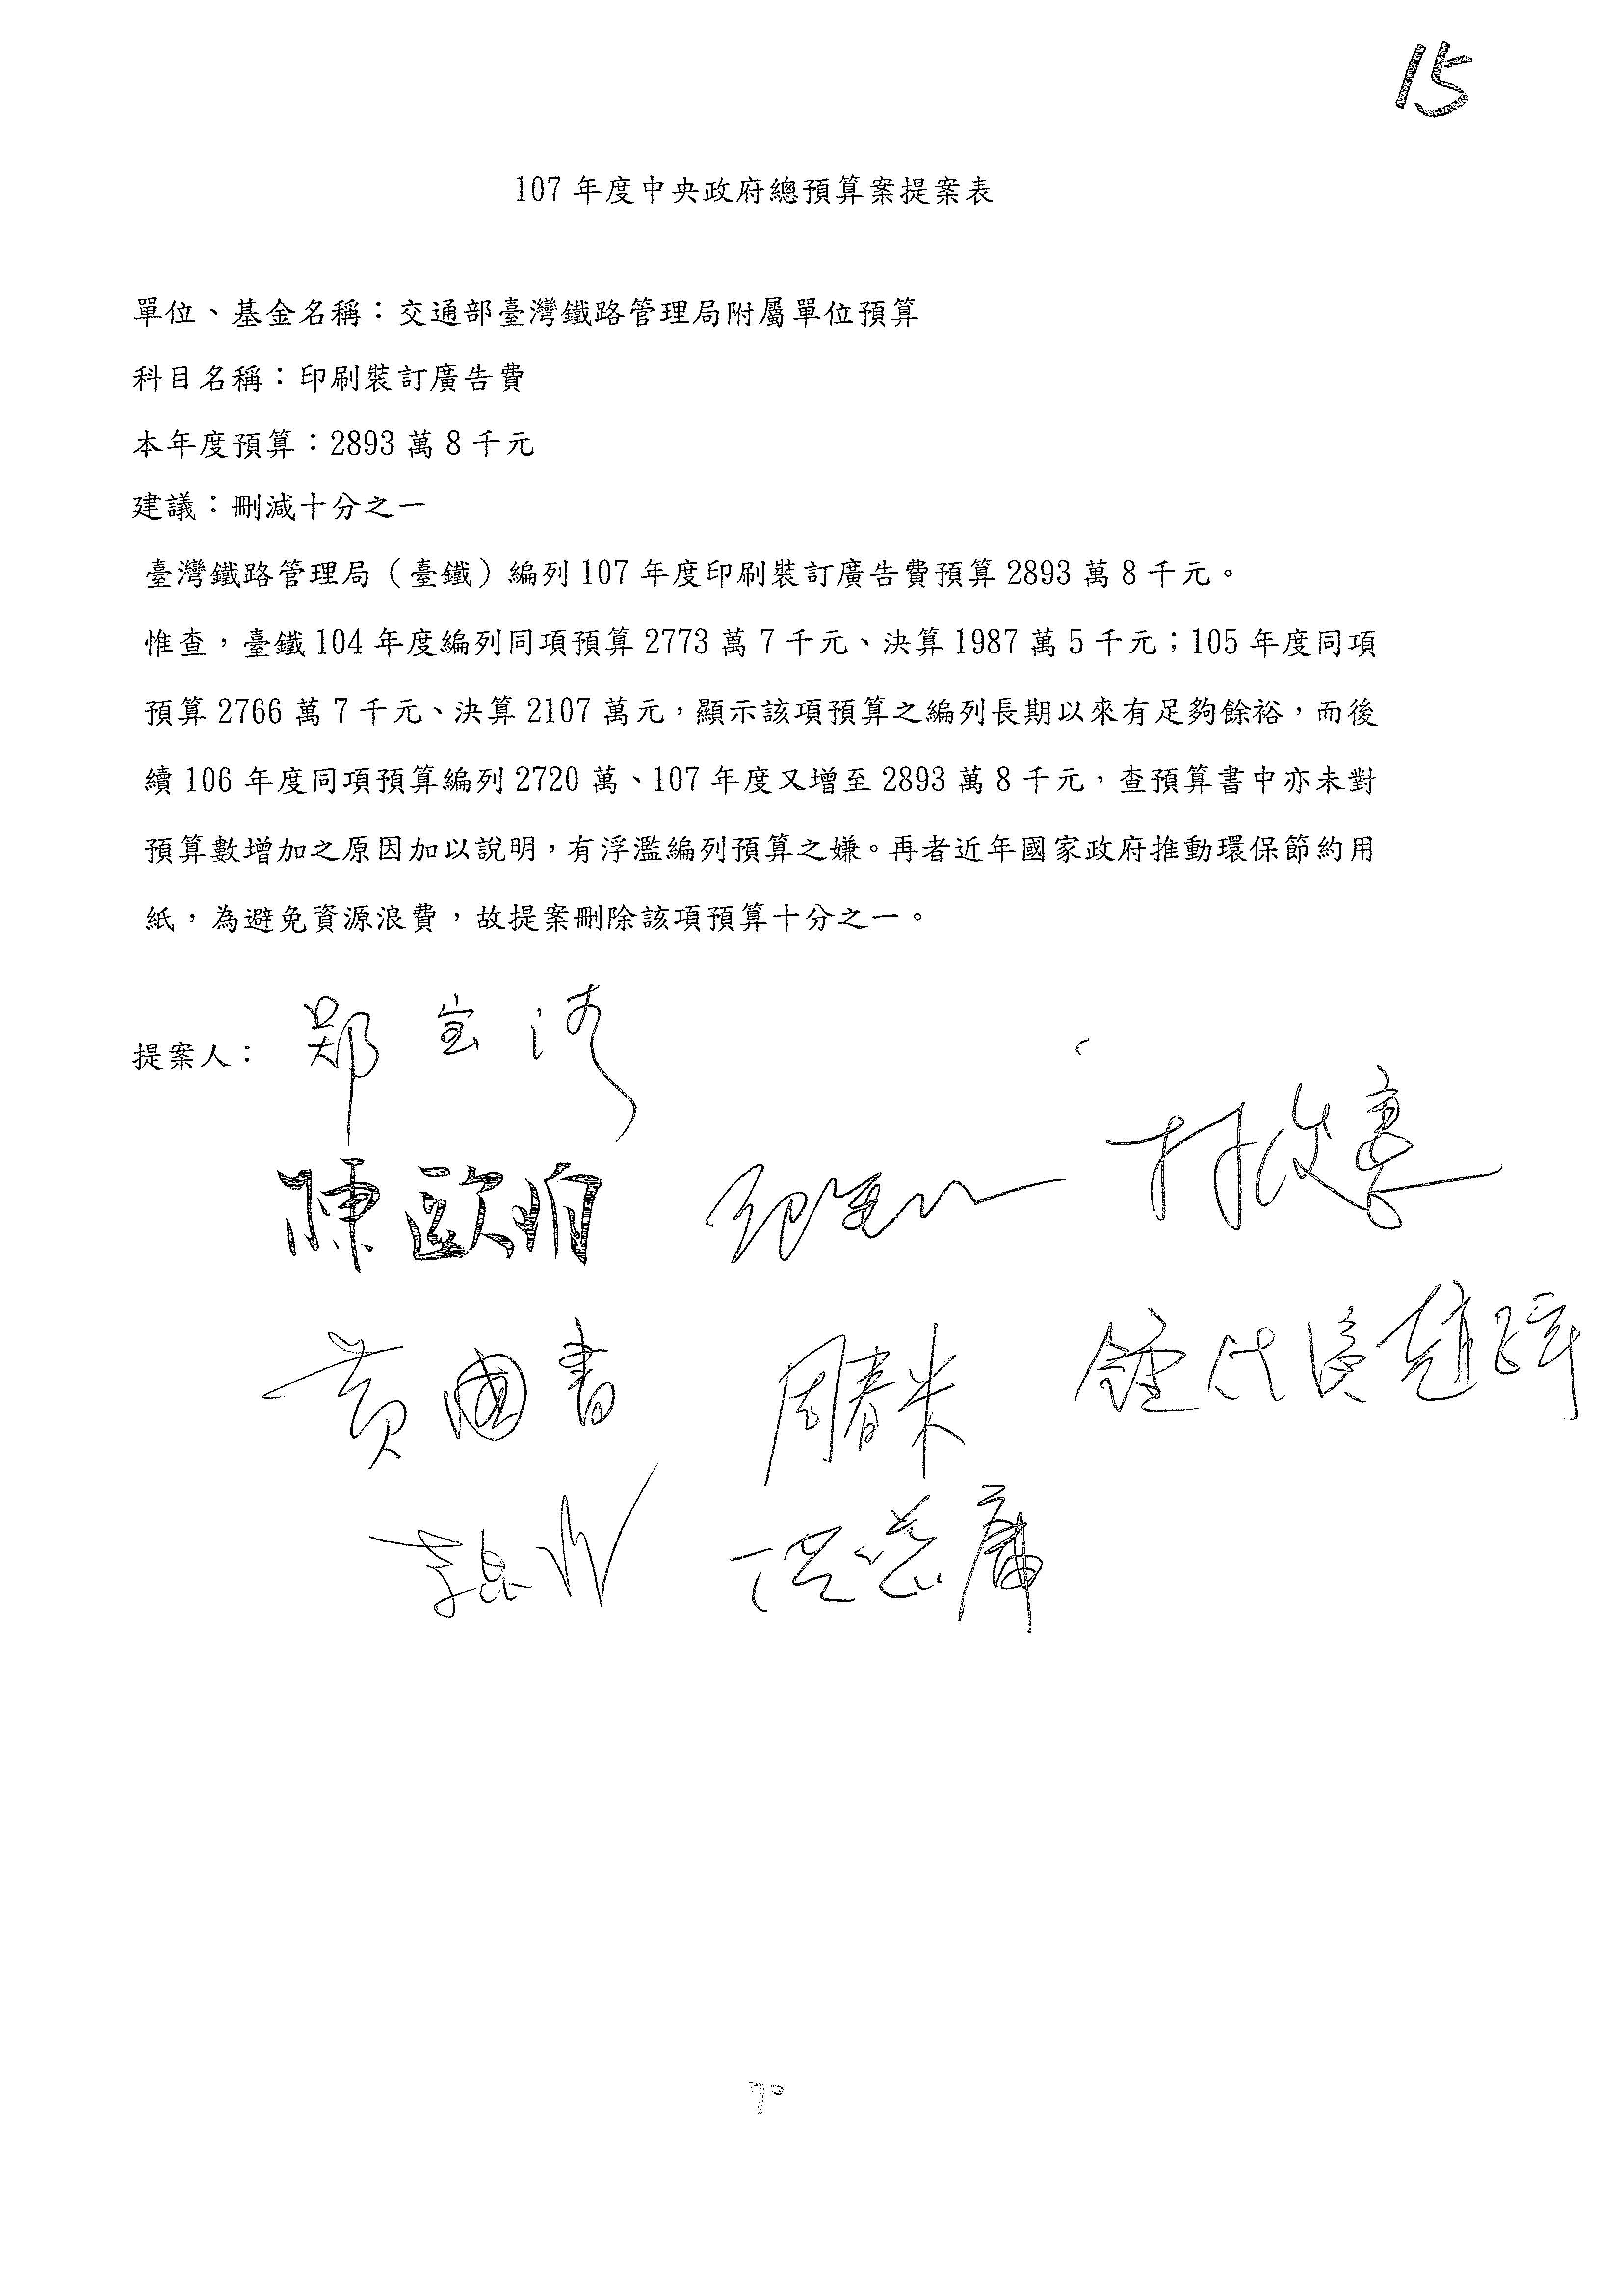 15
107 年度中央政府總預算案提案表
單位、基金名稱：交通部臺灣鐵路管理局附屬單位預算
科目名稱：印刷裝訂廣告費
本年度預算：2893 萬 8 千元
建議：刪減十分之一
臺灣鐵路管理局（臺鐵）編列 107 年度印刷裝訂廣告費預算 2893 萬 8 千元。
惟查，臺鐵 104 年度編列同項預算 2773 萬 7 千元、決算 1987 萬 5 千元；105 年度同項
預算 2766 萬 7 千元、決算 2107 萬元，顯示該項預算之編列長期以來有足夠餘裕，而後
續 106 年度同項預算編列 2720 萬、107 年度又增至 2893 萬 8 千元，查預算書中亦未對
預算數增加之原因加以說明，有浮濫編列預算之嫌。再者近年國家政府推動環保節約用
紙，為避免資源浪費，故提案刪除該項預算十分之一。
提案人：鄭宝清
陳歐珀 林俊憲
黃國書 周春米
李昆泽 洪慈庸
70